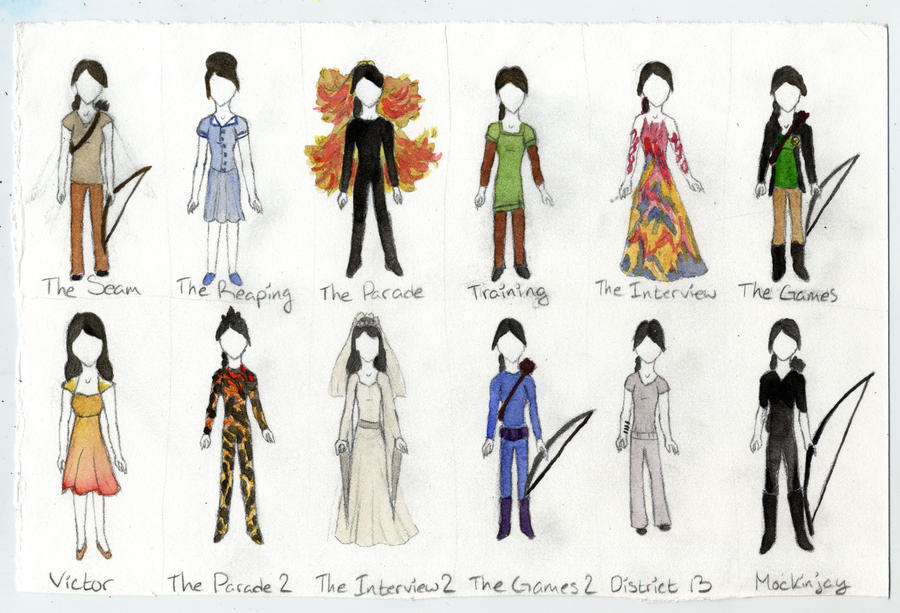 The Seam The Reaping The Parade Training The Interview The Games
Victor The Parade 2 The Interview 2 The Games 2 District 13 Mockinjay